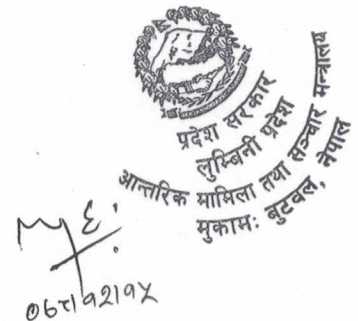 प्रदेश सरकार
लुम्बिनी प्रदेश
आन्तरिक मामिला तथा सञ्चार मन्त्रालय
मुकाम: बुटवल, नेपाल